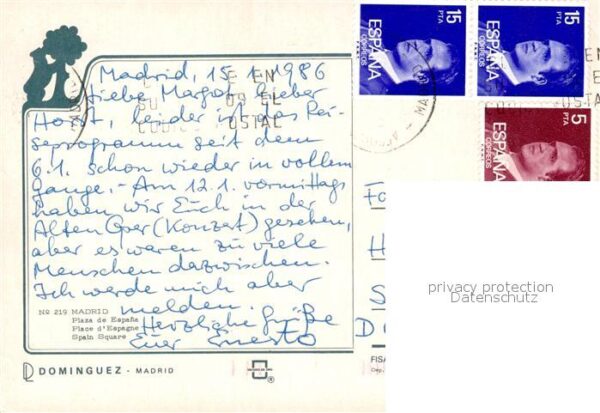 Madrid, 15.1.1986
Liebe Margot, lieber
Horst, leider ist das Rei-
seprogramm seit dem
6.1. schon wieder in vollem
Gange. - Am 12.1. vormittags
haben wir Euch in der
Alten Oper (Konzert) gesehen,
aber es waren zu viele
Menschen dazwischen.
Ich werde mich aber
melden.
Herzliche Grüße
Euer Ernesto
Nº 219 MADRID
Plaza de España
Place d'Espagne
Spain Square
DOMINGUEZ - MADRID
®
15
PTA
ESPAÑA
CORREOS
15
PTA
ESPAÑA
CORREOS
5
PTA
ESPAÑA
CORREOS
E EN
OS EL
OSTAL
EN
EL
OSTAL
Fa
H
S
D
FISA
privacy protection
Datenschutz